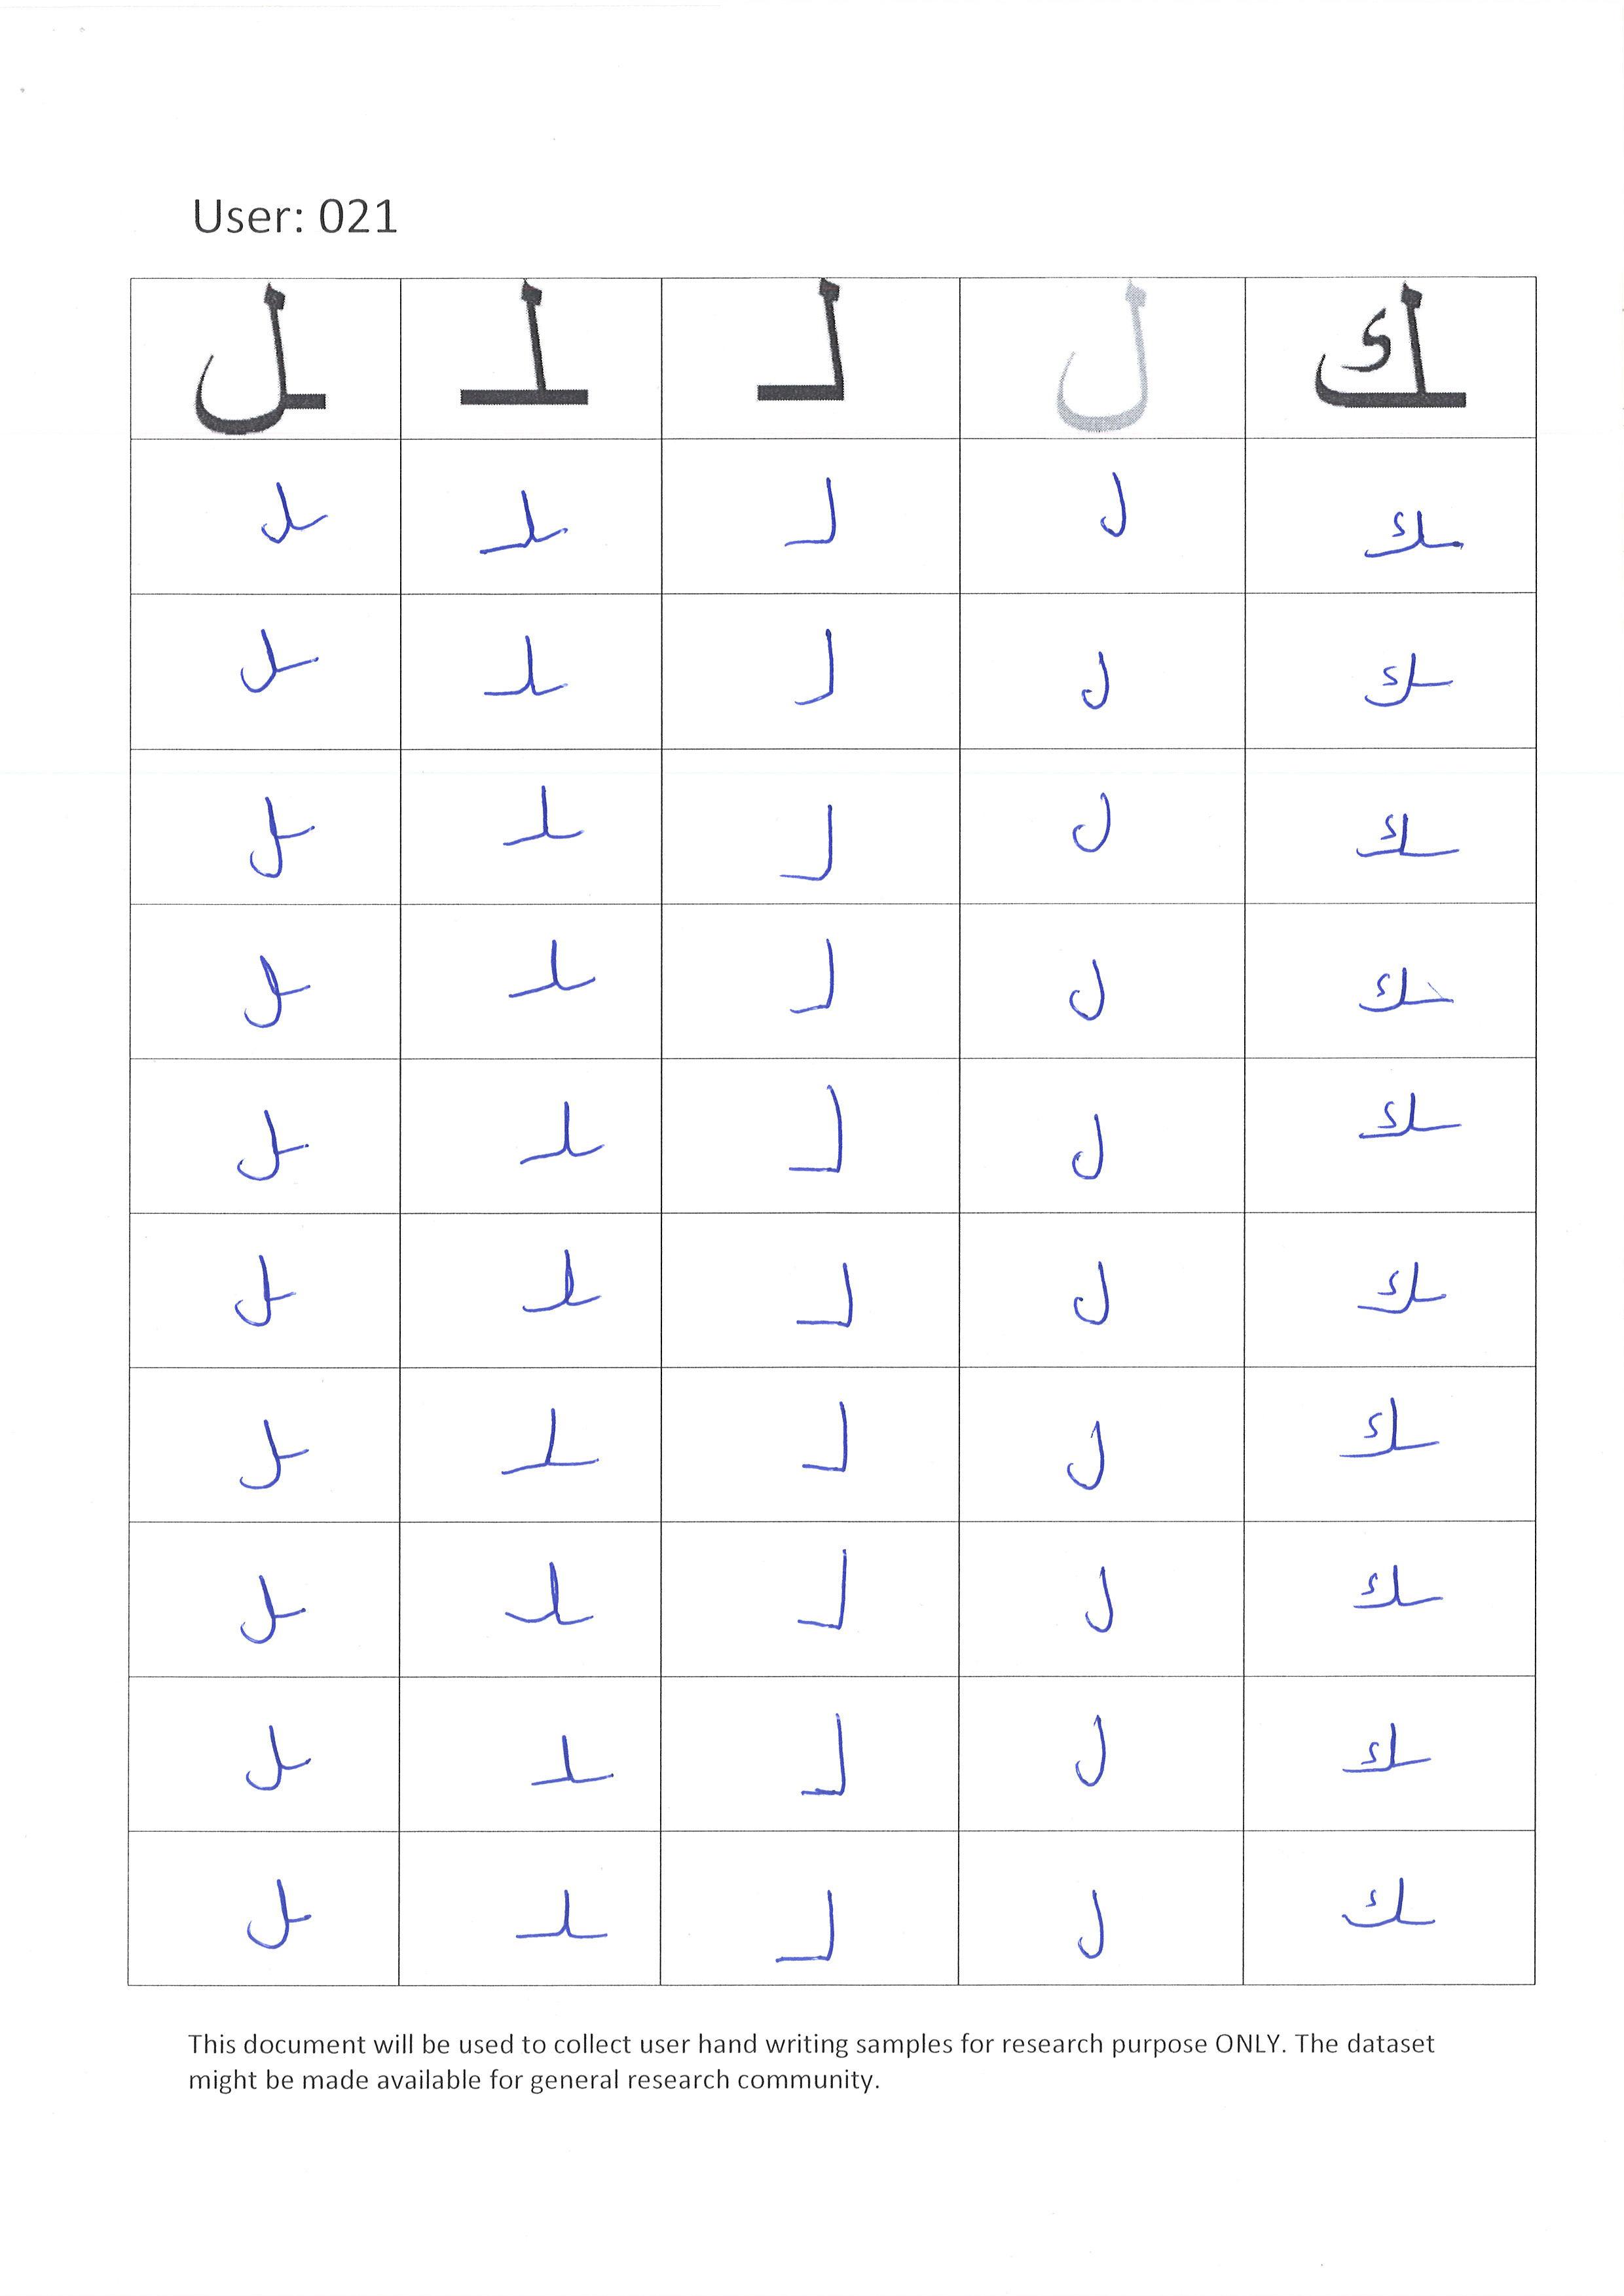 User: 021
ـل ـلـ لـ ل ـك
ـل ـلـ لـ ل ـك
ـل ـلـ لـ ل ـك
ـل ـلـ لـ ل ـك
ـل ـلـ لـ ل ـك
ـل ـلـ لـ ل ـك
ـل ـلـ لـ ل ـك
ـل ـلـ لـ ل ـك
ـل ـلـ لـ ل ـك
ـل ـلـ لـ ل ـك
ـل ـلـ لـ ل ـك
This document will be used to collect user hand writing samples for research purpose ONLY. The dataset
might be made available for general research community.